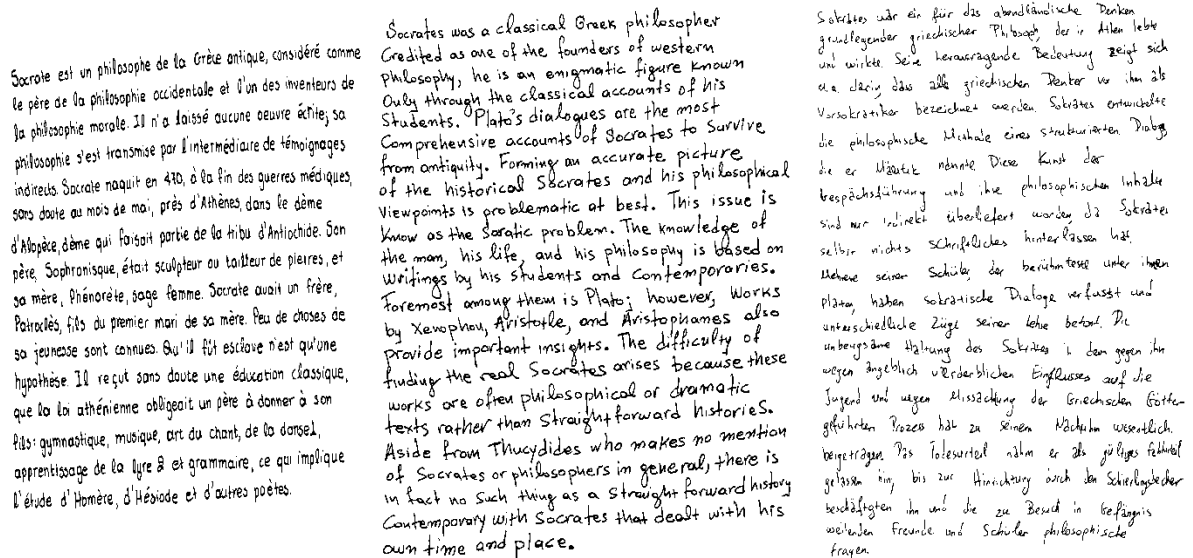 Socrate est un philosophe de la Grèce antique, considéré comme
le père de la philosophie occidentale et l'un des inventeurs de
la philosophie morale. Il n'a laissé aucune oeuvre écrite; sa
philosophie s'est transmise par l'intermédiaire de témoignages
indirects. Socrate naquit en 470, à la fin des guerres médiques,
sans doute au mois de mai, près d'Athènes, dans le dème
d'Alopèce, dème qui faisait partie de la tribu d'Antiochide. Son
père, Sophronisque, était sculpteur ou tailleur de pierres, et
sa mère, Phénarète, sage femme. Socrate avait un frère,
Patroclès, fils du premier mari de sa mère. Peu de choses de
sa jeunesse sont connues. Qu'il fût esclave n'est qu'une
hypothèse. Il reçut sans doute une éducation classique,
que la loi athénienne obligeait un père à donner à son
fils: gymnastique, musique, art du chant, de la danse,
apprentissage de la lyre et grammaire, ce qui implique
l'étude d'Homère, d'Hésiode et d'autres poètes.
Socrates was a classical Greek philosopher
Credited as one of the founders of western
philosophy, he is an enigmatic figure known
Only through the classical accounts of his
Students. Plato's dialogues are the most
Comprehensive accounts of Socrates to Survive
from antiquity. Forming an accurate picture
of the historical Socrates and his philosophical
viewpoints is problematic at best. This issue is
Know as the Soratic problem. The knowledge of
the man, his life, and his philosophy is based on
writings by his students and Contemporaries.
Foremost among them is Plato; however, works
by Xenophon, Aristotle, and Aristophanes also
provide important insights. The difficulty of
finding the real Socrates arises because these
works are often philosophical or dramatic
texts rather than Straightforward histories.
Aside from Thucydides who makes no mention
of Socrates or philosophers in general, there is
in fact no Such thing as a Straightforward history
Contemporary with Socrates that dealt with his
own time and place.
Sokrates war ein für das abendländische Denken
grundlegender griechischer Philosoph, der in Athen lebte
und wirkte. Seine herausragende Bedeutung zeigt sich
u.a. darin, dass alle griechischen Denker vor ihm als
Vorsokratiker bezeichnet werden. Sokrates entwickelte
die philosophische Methode eines strukturierten Dialogs
die er Mäeutik nannte. Diese Kunst der
Gesprächsführung und ihre philosophischen Inhalte
sind nur indirekt überliefert worden, da Sokrates
selbst nichts Schriftliches hinterlassen hat.
Mehrere seiner Schüler, der berühmteste unter ihnen
Platon, haben sokratische Dialoge verfasst und
unterschiedliche Züge seiner Lehre betont. Die
unbeugsame Haltung des Sokrates in dem gegen ihn
wegen angeblich verderblichen Einflusses auf die
Jugend und wegen Missachtung der Griechischen Götter
geführten Prozess hat zu seinem Nachruhm wesentlich
beigetragen. Das Todesurteil nahm er als gültiges Fehlurteil
gelassen hin, bis zur Hinrichtung durch den Schierlingsbecher
beschäftigten ihn und die zu Besuch in Gefängnis
weilenden Freunde und Schüler philosophische
Fragen.